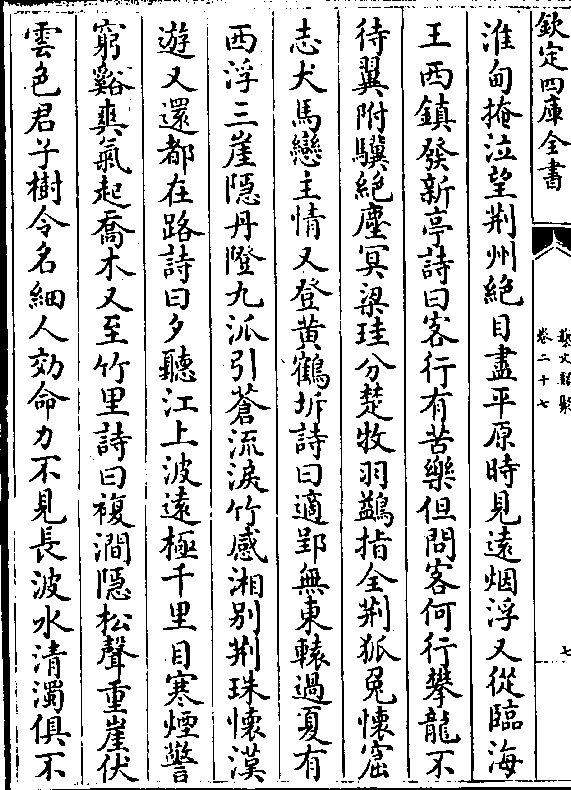 欽定四庫全書
藝文類聚
卷二十七
七
淮甸掩泣望荆州絶目盡平原時見逺烟浮又從臨海
王西鎮發新亭詩曰客行有苦樂但問客何行攀龍不
待翼附驥絶塵冥梁珪分楚牧羽鷁指全荆狐兎懷窟
志犬馬戀主情又登黄鶴圻詩曰適郢無東轅過夏有
西浮三崖隠丹磴九派引蒼流淚竹感湘别荆珠懷漢
遊又還都在路詩曰夕聽江上波逺極千里目寒煙警
窮谿爽氣起喬木又至竹里詩曰複澗隠松聲重崖伏
雲色君子樹令名細人効命力不見長波水清濁俱不